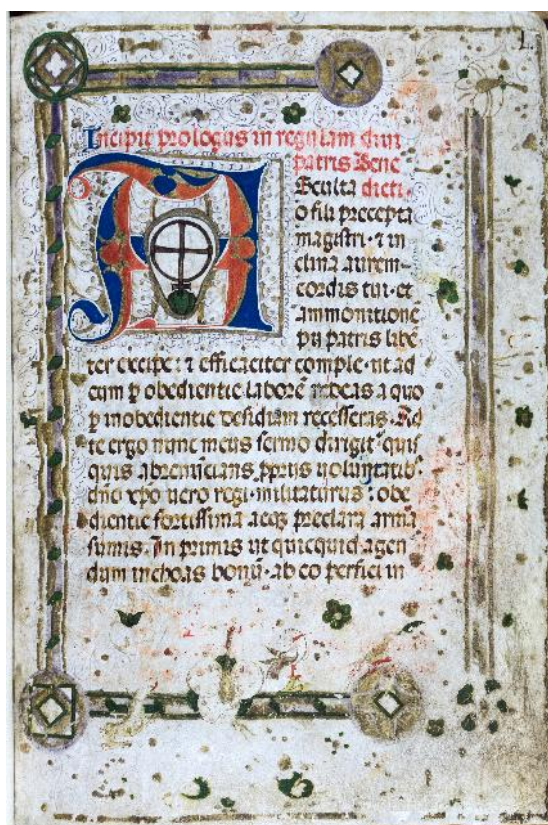 L
Incipit prologus in regulam diui
patris Bene
Sculta dicti.
A
o fili precepta
magistri· ⁊ in
clina aurem
cordis tui· et
ammonitionē
pii patris libē
ter excipe: ⁊ efficaciter comple· ut ad
eum ꝑ obedientie laborē redeas a quo
ꝑ inobedientie desidiam recesseras. Ad
te ergo nunc meus sermo dirigit᷒ quis
quis abrenūcians ꝓpriis uoluntatib᷒
dn̄o xp̄o uero regi militaturus: obe
dientie fortissima atqꝫ preclara arma
sumis. In primis ut quicquid agen
dum inchoas bonū· ab eo perfici in